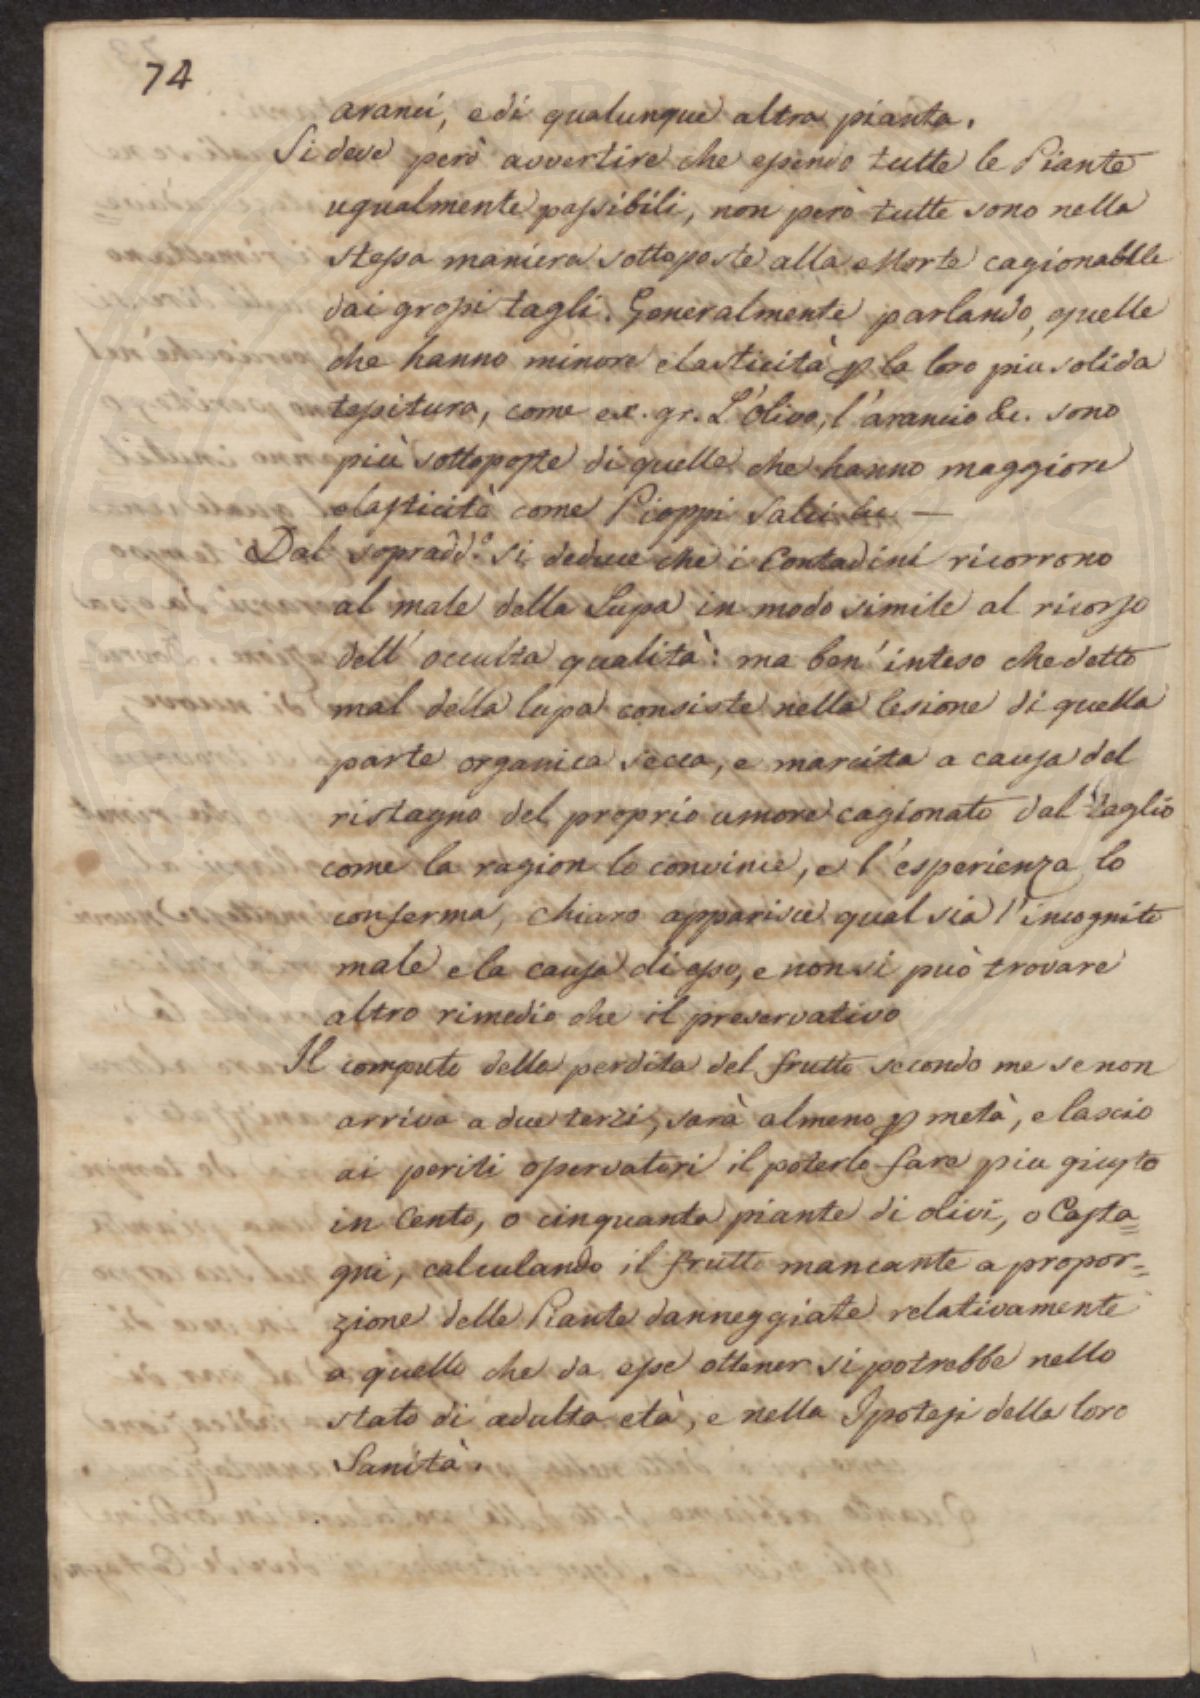 74
aranci, e di qualunque altra pianta.
Si deve però avvertire che essendo tutte le Piante
ugualmente passibili, non però tutte sono nella
stessa maniera sottoposte alla Morte cagionabile
dai grossi tagli. Generalmente parlando, quelle
che hanno minore elasticità p la loro piu solida
tessitura, come ex. gr. L'Olivo, l'arancio &c. sono
più sottoposte di quelle che hanno maggiore
elasticità come Pioppi Salci &c —
Dal sopradd.º si deduce che i Contadini ricorrono
al male della Lupa in modo simile al ricorso
dell' occulta qualità: ma ben' inteso che detto
mal della lupa consiste nella lesione di quella
parte organica secca, e marcita a causa del
ristagno del proprio umore cagionato dal taglio
come la ragion lo convince, e l'esperienza lo
conferma, chiaro apparisce qual sia l'incognito
male e la causa di esso, e non si può trovare
altro rimedio che il preservativo
Il computo della perdita del frutto secondo me se non
arriva a due terzi, sarà almeno p metà, e lascio
ai periti osservatori il poterlo fare piu giusto
in Cento, o cinquanta piante di olivi, o Casta=
gni, calculando il frutto mancante a propor=
zione delle Piante danneggiate relativamente
a quello che da esse ottener si potrebbe nello
stato di adulta età, e nella Ipotesi della loro
Sanità.